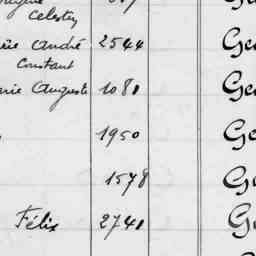 Celestin
André 2544 Ge
Constant
Auguste 1081 Ge
1950 Ge
1578 Ge
Félix 2741 Ge